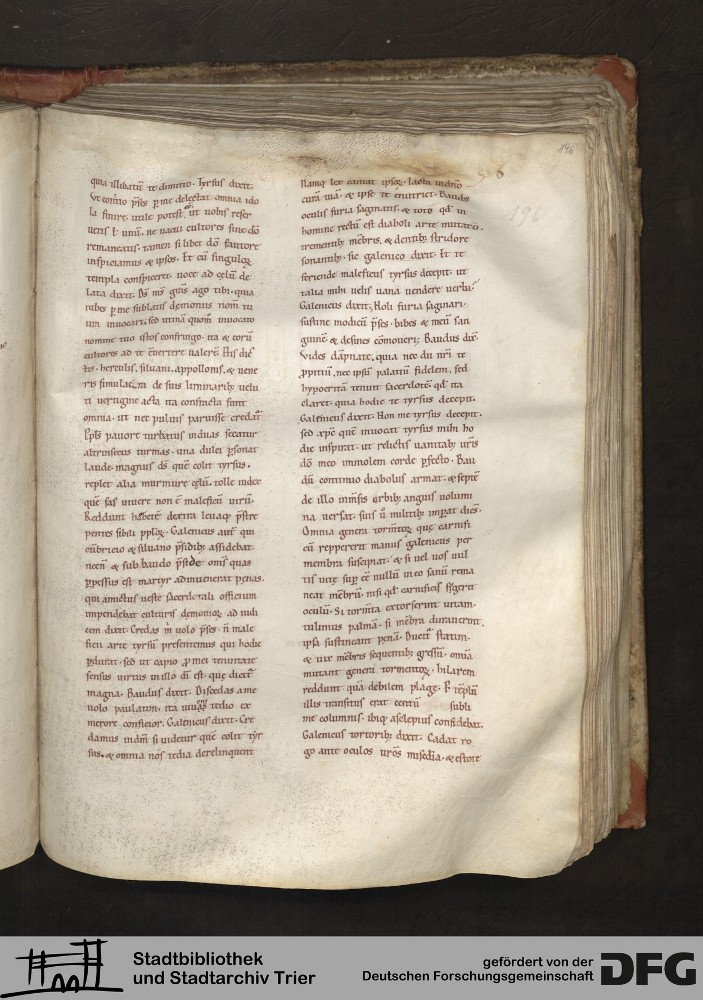 quia illibatū te dimitto. Tyrsus dixit.
Vt cōmo p̄ses p̄ me delectat. omnia ido
la finire. utile potest. ut uobis refer
ueris t̄ unū. ne uacui cultores sine dō
remaneatis. tamen si libet dō fautore
inspiciamus & ipsos. Et cū singuloꝝ
templa conspiceret. uoce ad cęlū de
lata dixit. Dn̄s ms̄ grās ago tibi. quia
iubes p̄ me sublatis demonus nom̄ tu
um inuocari. sed utinā quom̄ inuocato
nomine tuo istos confringo. ita & corū
cultores ad te cōuertere ualerē. His dic̄
tis. herculis. siluani. appollonis. & uene
ris simulacra de suis liminarib; uelu
ti uertigine acta ita confracta sunt
omnia. ut nec puluis paruisse credat̄
Ipsis pauore turbatus induas secatur
altrinsecus turmas. una dulci p̄sonat
laude. magnus ds̄ quē colit tyrsus.
replet alia murmure cęlū. tolle iudex
quē fas uiuere non ē maleficū uirū.
Reddunt habetē dextra leuaq; p̄stre
pentes sibili pploꝝ. Galenicus aut̄ qui
cūbricio & siluano p̄sidib; assidebat.
necn̄ & sub baudo p̄side omīs quas
ꝑpessus est martyr adinuenerat pęnas.
qui amictus ueste sacerdotali officium
impendebat culturis demonioꝝ ad iudi
cem dixit. Credas m̄ uolo p̄ses. n̄ male
fici arte tyrsū presentemus qui hodie
ꝑdurat. sed ut capio ꝓ mei tenuitate
sensus uirtus in illo dī est. quę dicit̄
magna. Baudus dixit. Discedas a me
uolo paulatim. ita uiuas tedio ex
merore conficior. Galenicus dixit. Cre
damus indm̄ si uidetur quē colit tyr
sus. & omnia nos tedia derelinquent
Namq; lex cantat ipsoꝝ. Iacta indn̄o
curā tuā. & ipse te enutriet. Baudus
oculis furia saginatis. & toto qd̄ in
homine rectū est diaboli arte mutato.
trementib; mēbris. & dentib; stridore
sonantib;. sic galenico dixit. Et te
feriende maleficus tyrsus decepit. ut
talia mihi uelis uana uendere uerbis
Galenicus dixit. Noli furia saginari.
sustine modicū p̄ses. bibes & meū san
guinē & desines cōmoueri. Baudus dix̄.
Vides dāpnate. quia nec dū nr̄i te
appitiū. nec ipsū palatiū fidelem. sed
hypocritā tenuit sacerdotē. qd̄ ita
claret. quia hodie te tyrsus decepit.
Galenicus dixit. Non me tyrsus decepit.
sed xp̄c quē inuocat tyrsus mihi ho
die inspirat. ut relictis uanitatib; ur̄is
dō meo immolem corde ꝑfecto. Bau
dū continuo diabolus armat. & septē
de illo immēsis orbib; anguis uolumi
na uersat. suis ū militib; imp̄at dicēs.
Omnia genera torm̄toꝝ quę carnifi
cū reppererit manus galenicus per
membra suscipiat. & si uel uos uul
tis uite sup̄ cē nullū in eo sanū rema
neat mēbrū. nisi qd̄ carnificis fugerit
oculū. Si torm̄ta extorserint uitam.
tulimus palmā. si mēbra durauerint.
ipsi sustineant pęnā. Ducit̄ statim.
& uix mēbris sequentib; gressū. omīa
mittant genera tormentoꝝ. hilarem
reddunt quā debilem plagę. P̄ tēplū
illis transitus erat centū subli
me columnis. ibiq; asclepius confidebat.
Galenicus tortorib; dixit. Cadat ro
go ante oculos uros misedia. & estote
196
Stadtbibliothek
und Stadtarchiv Trier
gefördert von der
Deutschen Forschungsgemeinschaft
DFG